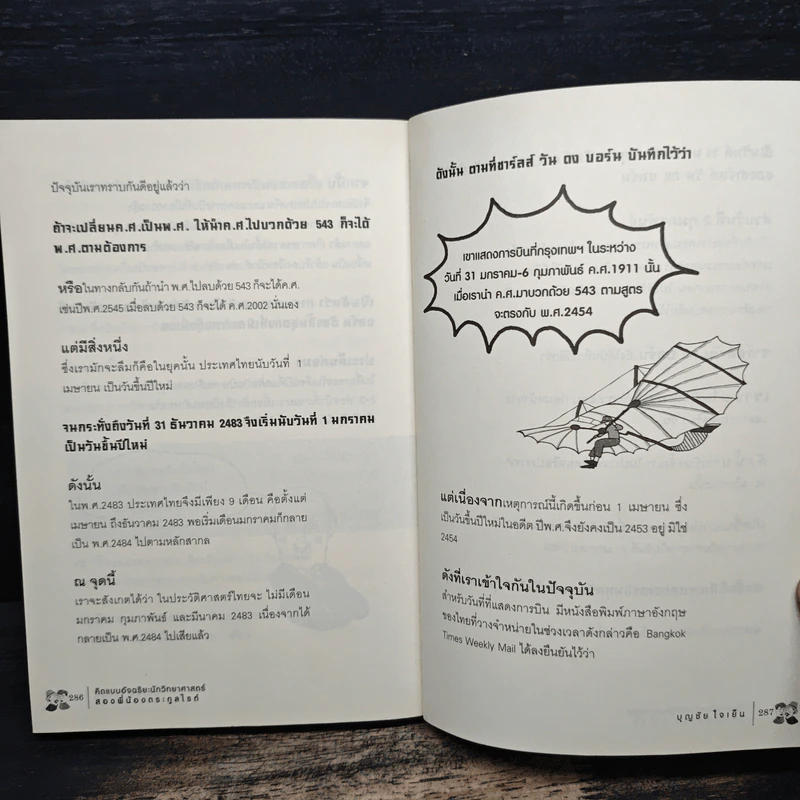 ปัจจุบันเราทราบกันดีอยู่แล้วว่า
ถ้าจะเปลี่ยนค.ศ.เป็นพ.ศ. ให้นำค.ศ.ไปบวกด้วย 543 ก็จะได้
พ.ศ.ตามต้องการ
หรือในทางกลับกันถ้านำ พ.ศ.ไปลบด้วย 543 ก็จะได้ค.ศ.
เช่นปีพ.ศ.2545 เมื่อลบด้วย 543 ก็จะได้ ค.ศ.2002 นั่นเอง
แต่มีสิ่งหนึ่ง
ซึ่งเรามักจะลืมก็คือในยุคนั้น ประเทศไทยนับวันที่ 1
เมษายน เป็นวันขึ้นปีใหม่
จนกระทั่งถึงวันที่ 31 ธันวาคม 2483 จึงเริ่มนับวันที่ 1 มกราคม
เป็นวันขึ้นปีใหม่
ดังนั้น
ในพ.ศ.2483 ประเทศไทยจึงมีเพียง 9 เดือน คือตั้งแต่
เมษายน ถึงธันวาคม 2483 พอเริ่มเดือนมกราคมก็กลาย
เป็น พ.ศ.2484 ไปตามหลักสากล
ณ จุดนี้
เราจะสังเกตได้ว่า ในประวัติศาสตร์ไทยจะ ไม่มีเดือน
มกราคม กุมภาพันธ์ และมีนาคม 2483 เนื่องจากได้
กลายเป็น พ.ศ.2484 ไปเสียแล้ว
286
คิดแบบอัจฉริยะนักวิทยาศาสตร์
สองพี่น้องตระกูลไรต์
ดังนั้น ตามที่ชาร์ลส์ วัน ดง บอร์น บันทึกไว้ว่า
เขาแสดงการบินที่กรุงเทพฯ ในระหว่าง
วันที่ 31 มกราคม-6 กุมภาพันธ์ ค.ศ.1911 นั้น
เมื่อเรานำ ค.ศ.มาบวกด้วย 543 ตามสูตร
จะตรงกับ พ.ศ.2454
แต่เนื่องจากเหตุการณ์นี้เกิดขึ้นก่อน 1 เมษายน ซึ่ง
เป็นวันขึ้นปีใหม่ในอดีต ปีพ.ศ.จึงยังคงเป็น 2453 อยู่ มิใช่
2454
ดังที่เราเข้าใจกันในปัจจุบัน
สำหรับวันที่ที่แสดงการบิน มีหนังสือพิมพ์ภาษาอังกฤษ
ของไทยที่วางจำหน่ายในช่วงเวลาดังกล่าวคือ Bangkok
Times Weekly Mail ได้ลงยืนยันไว้ว่า
บุญชัย ใจเย็น
287